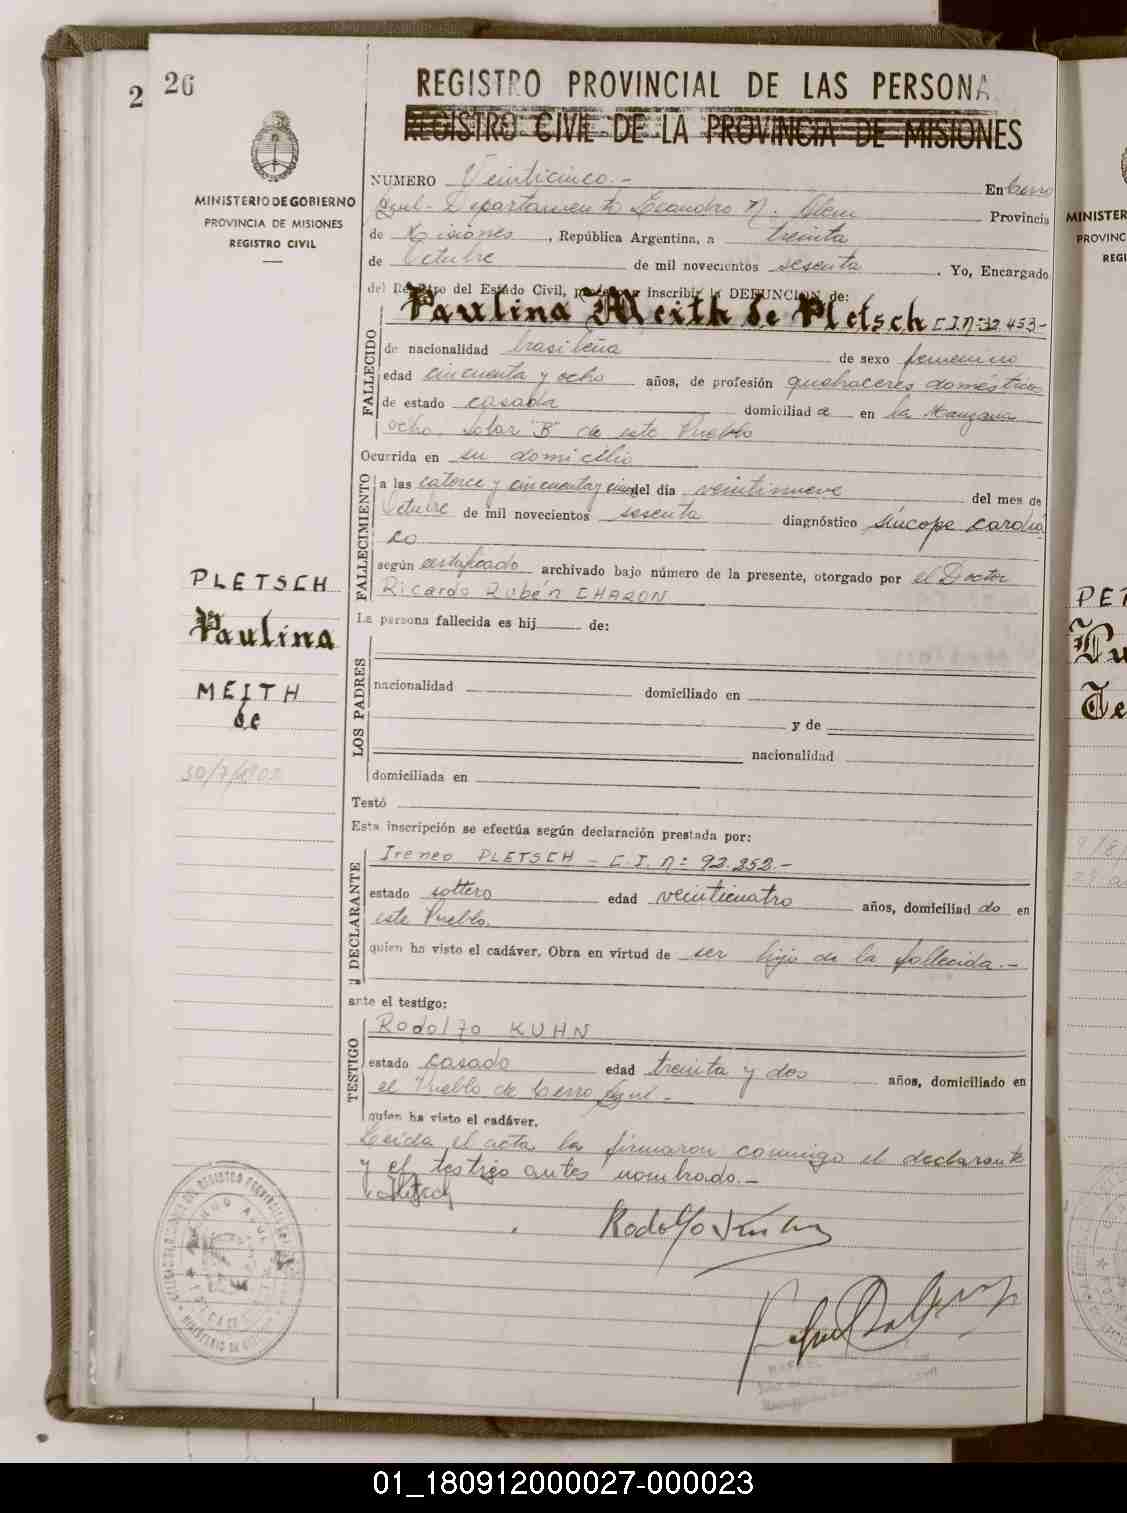 2 26
REGISTRO PROVINCIAL DE LAS PERSONA
REGISTRO CIVIL DE LA PROVINCIA DE MISIONES
MINISTERIO DE GOBIERNO
PROVINCIA DE MISIONES
REGISTRO CIVIL
NUMERO Veinticinco.- En Cerro
Azul- Departamento Leandro N. Alem Provincia
de Misiones, República Argentina, a treinta
de Octubre de mil novecientos sesenta. Yo, Encargado
del Registro del Estado Civil, procedo a inscribir la DEFUNCION de:
Paulina Meith de Pletsch C.I.Nº 32.453-
FALLECIDO
de nacionalidad brasileña de sexo femenino
edad cincuenta y ocho años, de profesión quehaceres domésticos
de estado casada domiciliad a en la Manzana
ocho, Solar "B" de este Pueblo
Ocurrida en su domicilio
FALLECIMIENTO
a las catorce y cincuenta y cinco del día veintinueve del mes de
Octubre de mil novecientos sesenta diagnóstico síncope cardía
co
según certificado archivado bajo número de la presente, otorgado por el Doctor
Ricardo Rubén CHARON
PLETSCH
Paulina
MEITH
de
30/7/1902
La persona fallecida es hij de:
LOS PADRES
nacionalidad domiciliado en
y de
nacionalidad
domiciliada en
Testó
Esta inscripción se efectúa según declaración prestada por:
DECLARANTE
Ireneo PLETSCH - C.I. Nº 92.252.-
estado soltero edad veinticuatro años, domiciliad do en
este Pueblo.
quien ha visto el cadáver. Obra en virtud de ser hijo de la fallecida.-
ante el testigo:
TESTIGO
Rodolfo KUHN
estado casado edad treinta y dos años, domiciliado en
el Pueblo de Cerro Azul.-
quien ha visto el cadáver.
Leida el acta la firmaron conmigo el declarante
y el testigo antes nombrado.-
Rodolfo Kuhn
MINISTER
PROVINC
REGI
PET
01_180912000027-000023